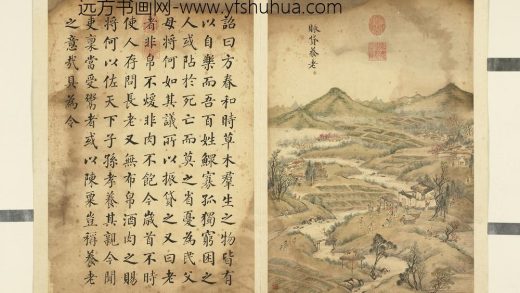 远方书画网-www.yfshuhua.com
賑貸養老
詔曰方春和時草木羣生之物皆有
以自樂而吾百姓鰥寡孤獨窮困之
人或阽於死亡而莫之省憂為民父
母將何如其議所以振貸之又曰老
者非帛不煖非肉不飽今歲首不時
使人存問長老又無布帛酒肉之賜
將何以佐天下子孫孝養其親今聞
吏稟當受鬻者或以陳粟豈稱養老
之意哉具為令